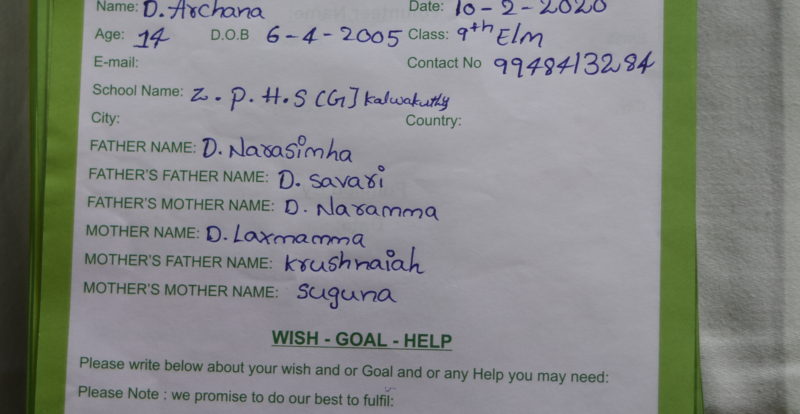 Name: D. Archana Date: 10-2-2020
Age: 14 D.O.B 6-4-2005 Class: 9th E/m
E-mail: Contact No 9948413284
School Name: Z.P.H.S (G) Kalwakurthy
City: Country:
FATHER NAME: D. Narasimha
FATHER'S FATHER NAME: D. Savari
FATHER'S MOTHER NAME: D. Naramma
MOTHER NAME: D. Laxmamma
MOTHER'S FATHER NAME: Krushnaiah
MOTHER'S MOTHER NAME: Suguna
WISH - GOAL - HELP
Please write below about your wish and or Goal and or any Help you may need:
Please Note : we promise to do our best to fulfil: